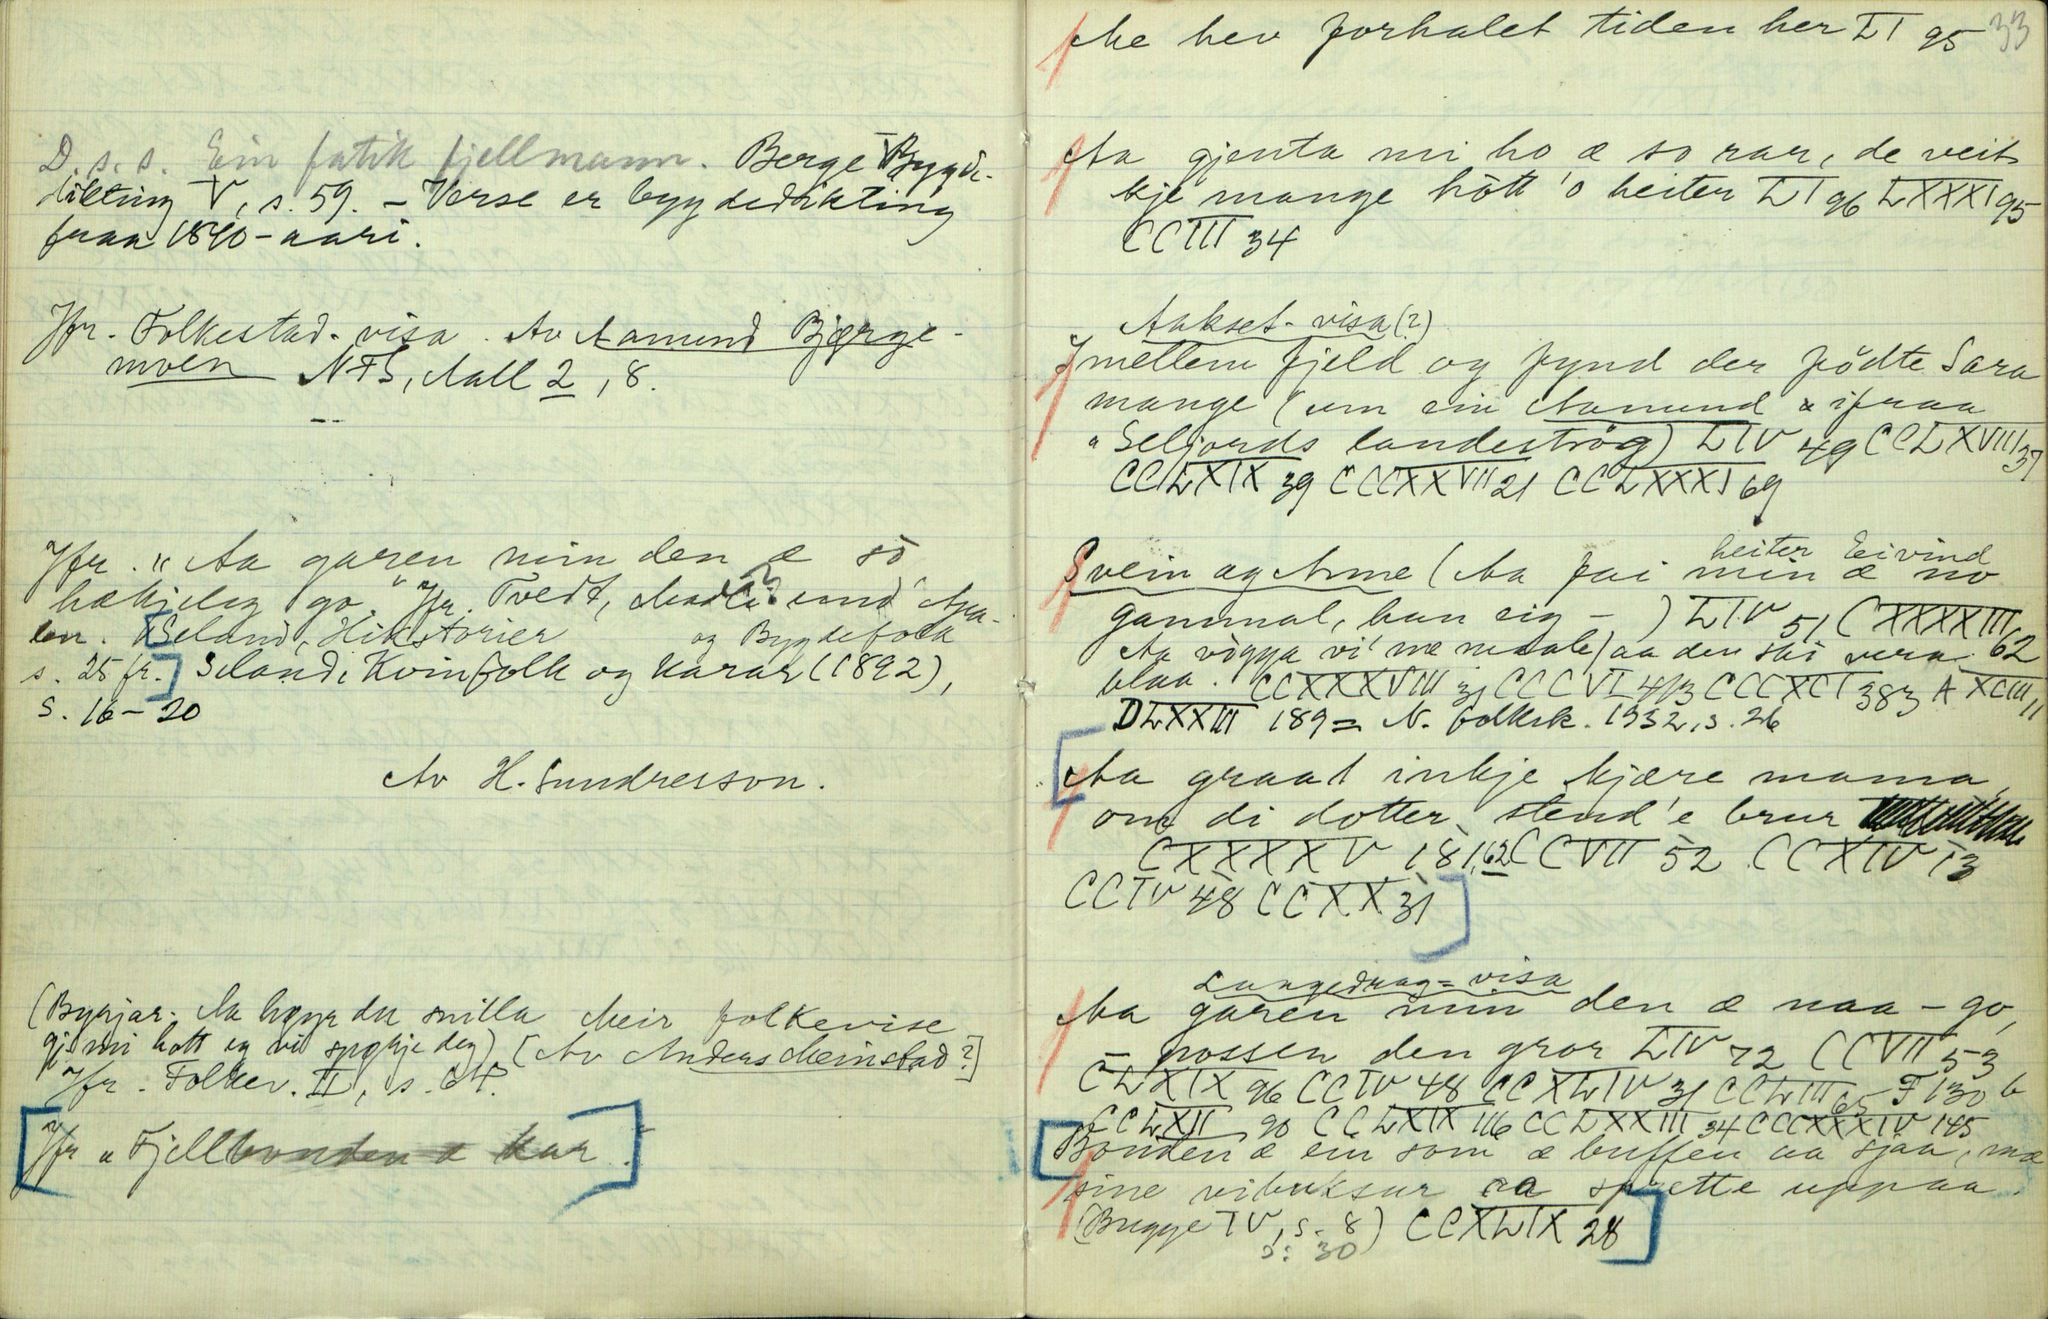 D.s.s. Ein fatik fjellmann. Berge Bygde-
dikting V, s. 59. – Verse er bygdedikting
fraa 1840-aari.
Jfr. Folkestad-visa. Av Aamund Bjørge-
moen NFS, Aall 2, 8.
Jfr. "Aa garen min den æ so
hækjeleg go." Jfr. Tvedt,
Seland, Histrorier og Bygdefolk
s. 25 fr.] Seland, Kvinfolk og Karar (1892),
S. 16–20
Av H. Sundresson.
(Byrjar: Aa høyr du snilla Meir folkevise
gj. mi hott eg vi spørje deg) [Av Anders Meinstad?]
Jfr. Folkev. II, s. 67.
[Jfr "Fjellbonden æ kar.]
33
Me hev forhalet tiden her LI 95
Aa gjenta mi ho æ so rar, de veit
kje mange hótt 'o heiter LI 96 LXXXI 95
CCIII 34
Aakset-visa (?)
Imellem fjeld og fynd der födte Sara
mange (um ein Aamund æ ifraa
"Seljords landeströg) LIV 49 CCLXVIII 37
CCLXIX 39 CCCXXVII 21 CCLXXXI 69
heiter Eivind
Svein og Anne (Aa fai min æ no
gammal, han sig – ) LIV 51 CXXXXIII 62
Aa vogga vi' me maale) aa den ski vera
blaa. CCXXXVIII 31 CCCVI 413 CCCXCI 383 A XCIII, 11
DLXXVI 189 = N. folkek. 1932, s. 26
[Aa graat inkje kjære mama
om di dotter stend'e brur
CXXXXV 181,62 CCVII 52 CCXIV 13
CCIV 48 CCXX 31]
Langedrag-visa
Aa garen min den æ naa-go,
possen den gror LIV 72 CCVII 53
CLXIX 96 CCIV 48 CCXLIV 31 CCLIII 65 F 130 b
CCLXII 90 CCLXIX 116 CCLXXIII 34 CCCXXXIV 145
[Bonden æ ein som æ buffen aa sjaa, mæ
sine vibuksur aa sprette uppaa.
(Bugge IV, s. 8) CCXLIX 28]
s: 30